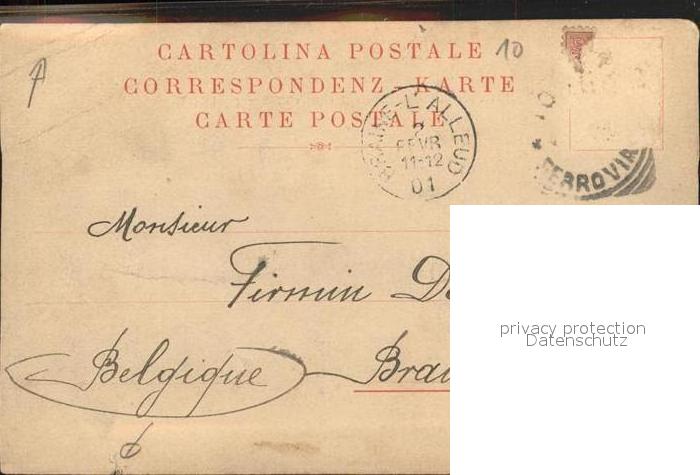 A
10
CARTOLINA POSTALE
CORRESPONDENZ-KARTE
CARTE POSTALE
BRAINE-L'ALLEUD
2
FEVR
11-12
01
FERROVIA
Monsieur
Firmin D
Belgique Brai
privacy protection
Datenschutz